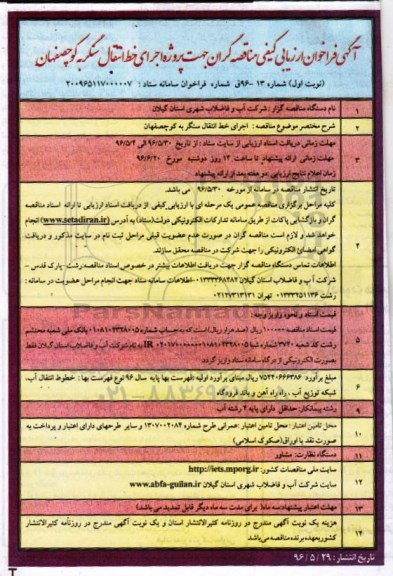 آگهی فراخوان ارزیابی کیفی مناقصه گران جهت پروژه اجرای خط انتقال سنگر به کوچصفهان
(نوبت اول) شماره ۱۳ -۹۶ق شماره فراخوان سامانه ستاد : ۲۰۰۹۶۵۱۱۷۰۰۰۰۰۷
۱ نام دستگاه مناقصه گزار : شرکت آب و فاضلاب شهری استان گیلان
۲ شرح مختصر موضوع مناقصه : اجرای خط انتقال سنگر به کوچصفهان
مهلت زمانی دریافت اسناد ارزیابی از سایت ستاد : از تاریخ ۹۶/۵/۳۰ الی ۹۶/۵/۴
۳ مهلت زمانی ارائه پیشنهاد تا ساعت ۱۲ روز دوشنبه مورخ ۹۶/۶/۲۰
زمان اعلام نتایج ارزیابی دو هفته بعد از ارائه پیشنهاد
تاریخ انتشار مناقصه در سامانه از مورخه ۹۶/۵/۳۰ می باشد.
کلیه مراحل برگزاری مناقصه عمومی یک مرحله ای با ارزیابی کیفی از دریافت اسناد ارزیابی تا ارائه اسناد مناقصه
گران و بازگشایی پاکات از طریق سامانه تدارکات الکترونیکی دولت(ستاد) به آدرس (www.setadiran.ir) انجام
خواهد شد و لازم است مناقصه گران در صورت عدم عضویت قبلی مراحل ثبت نام در سایت مذکور و دریافت
۴ گواهی امضای الکترونیکی را جهت شرکت در مناقصه محقق سازند.
اطلاعات تماس دستگاه مناقصه گزار جهت دریافت اطلاعات بیشتر در خصوص اسناد مناقصه:رشت- پارک قدس -
شرکت آب و فاضلاب استان گیلان -اطلاعات سامانه ستاد جهت انجام مراحل عضویت در سامانه :
رشت تهران
قیمت اسناد و نحوه واریز وجه:
قیمت اسناد مناقصه ۱۰۰۰۰۰ ریال (صد هزار ریال) است که به حساب شماره بانک ملی شعبه محتشم
۵ رشت کد شعبه ۳۷۲۰ شماره شبا به نام شرکت آب و فاضلاب استان گیلان فقط
بصورت الکترونیکی از درگاه سامانه ستاد واریز گردد
مبلغ برآورد ۷۵۲۴۰۶۶۶۳۸۶ ریال مبنای برآورد اولیه :فهرست بها پایه سال ۹۶ نوع فهرست بها : خطوط انتقال آب،
۶ شبکه توزیع آب ، راه راه آهن و باند فرودگاه
۹ رشته پیمانکار: حداقل دارای پایه ۲ رشته آب
محل تامین اعتبار : محل تامین اعتبار :عمرانی طرح شماره ۱۳۰۷۰۰۲۰۸۴ و سایر طرحهای دارای اعتبار و پرداخت به
۱۰ صورت نقد یا اوراق(صکوک اسلامی)
۱۱ دستگاه نظارت: مشاور
سایت ملی مناقصات کشور: http://iets.mporg.ir
۱۲ سایت شرکت آب و فاضلاب شهری استان گیلان www.abfa-guilan.ir
۱۳ مهلت اعتبار پیشنهاد:سه ماه( برای مدت سه ماه دیگر قابل تمدید می باشد)
هزینه یک نوبت آگهی مندرج در روزنامه کثیرالانتشار استان و یک نوبت آگهی مندرج در روزنامه کثیرالانتشار
۱۴ کشور بعهده برنده مناقصه می باشد
تاریخ انتشار : ۹۶ / ۵ / ۲۹